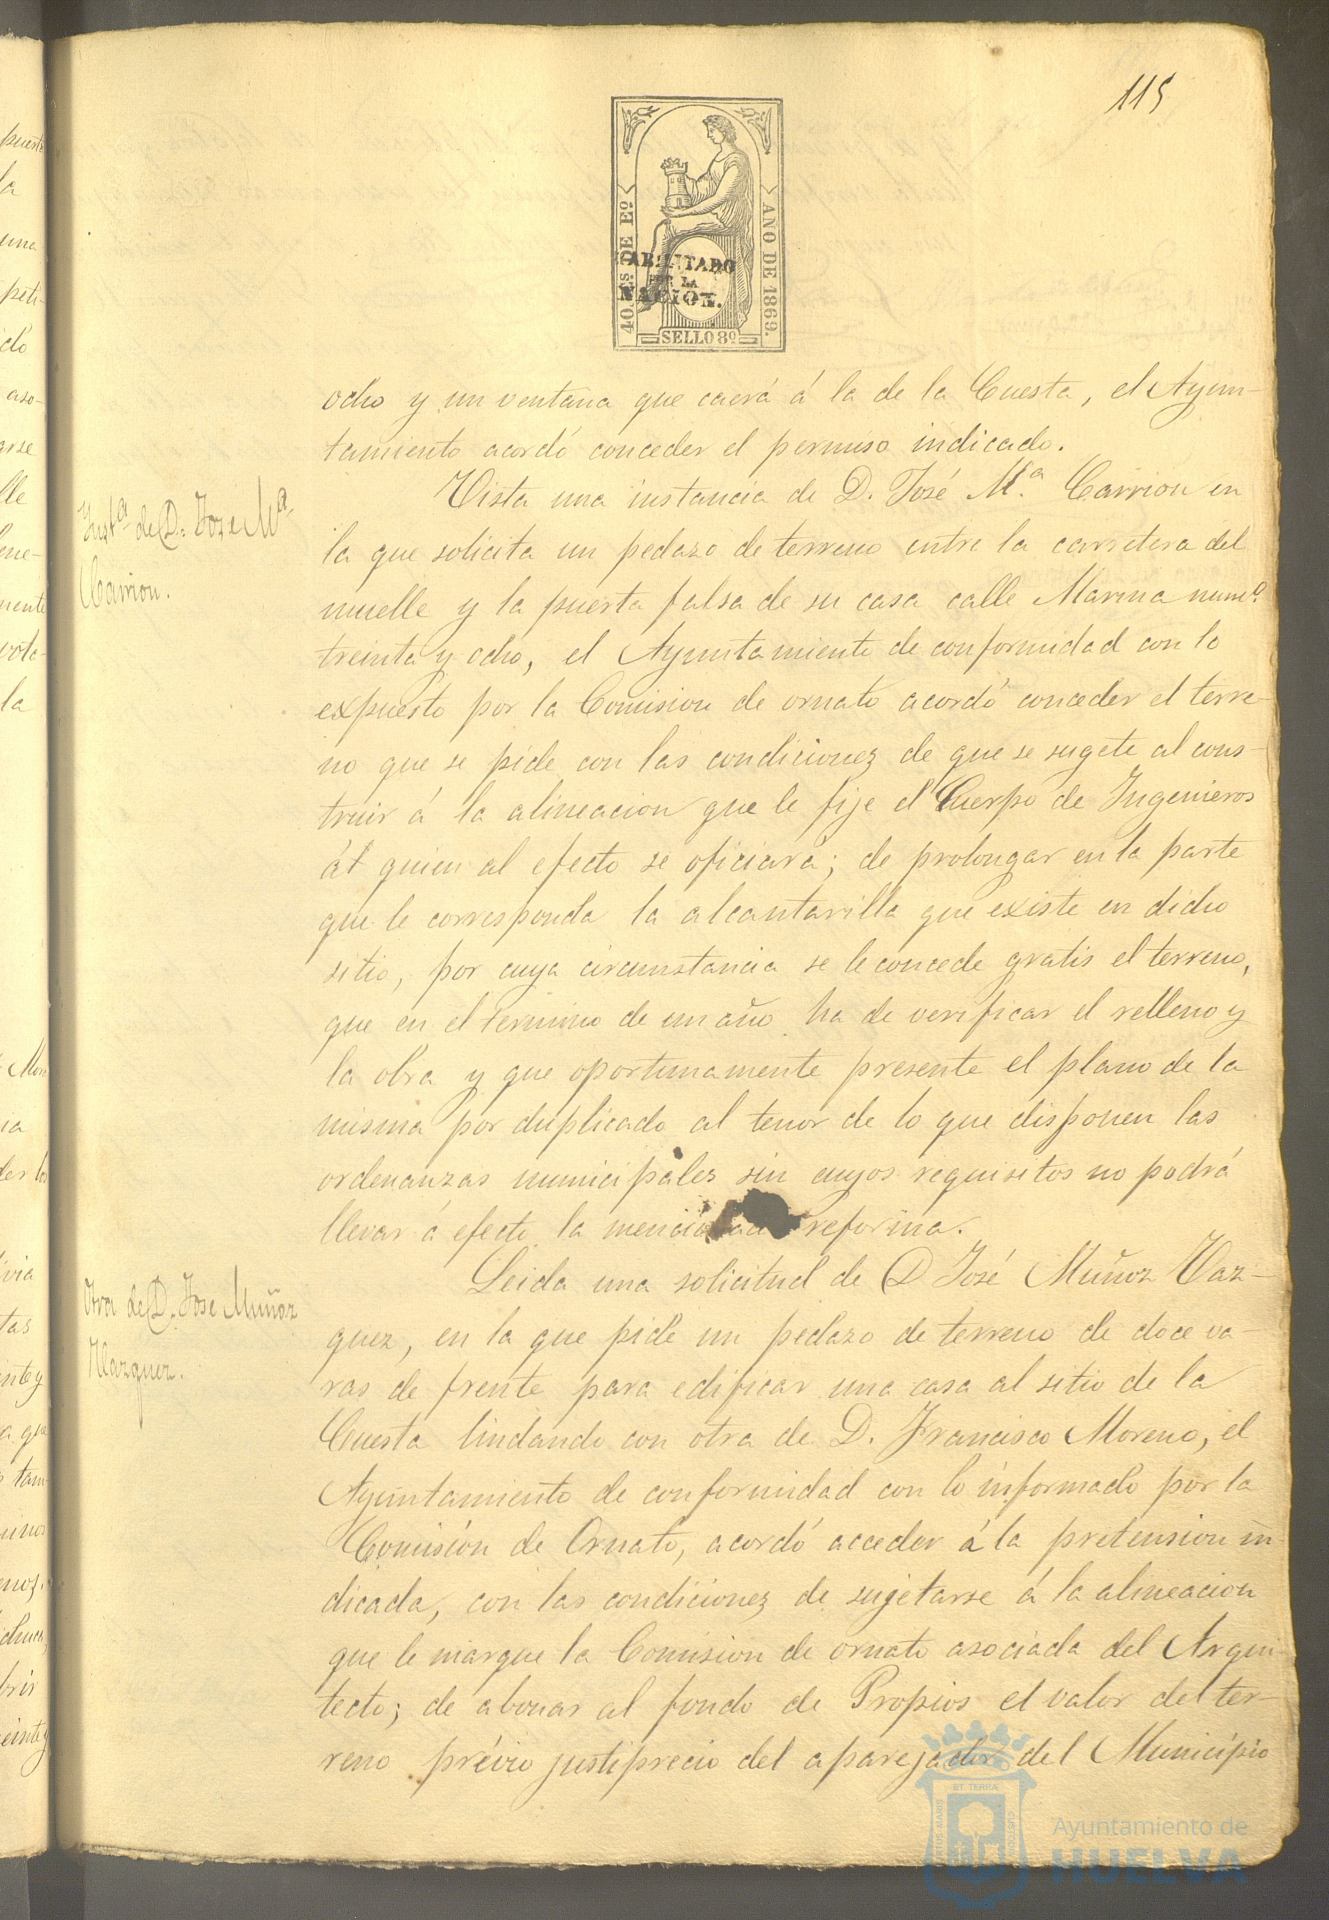 115
40 Cs. DE Eº
AÑO DE 1869.
HABILITADO
POR LA
NACION.
SELLO 8º
ocho y un ventana que caerá á la de la Cuesta, el Ayun-
tamiento acordó conceder el permiso indicado.
Instª de D. Jose Mª
Carrion.
Vista una instancia de D. José M.ª Carrion en
la que solicita un pedazo de terreno entre la carretera del
muelle y la puerta falsa de su casa calle Marina numº
treinta y ocho, el Ayuntamiento de conformidad con lo
expuesto por la Comision de ornato acordó conceder el terre-
no que se pide con las condiciones de que se sugete al cons-
truir á la alineacion que le fije el Cuerpo de Ingenieros
al quien al efecto se oficiará; de prolongar en la parte
que le corresponda la alcantarilla que existe en dicho
sitio, por cuya circunstancia se le concede gratis el terreno,
que en el termino de un año ha de verificar el relleno y
la obra y que oportunamente presente el plano de la
misma por duplicado al tenor de lo que disponen las
ordenanzas municipales sin cuyos requisitos no podrá
llevar á efecto la reforma.
Otra de D. Jose Muñoz
Vazquez.
Leida una solicitud de D José Muñoz Vaz-
quez, en la que pide un pedazo de terreno de doce va-
ras de frente para edificar una casa al sitio de la
Cuesta lindando con otra de D. Francisco Moreno, el
Ayuntamiento de conformidad con lo informado por la
Comisión de Ornato, acordó acceder á la pretension in-
dicada, con las condiciones de sujetarse á la alineacion
que le marque la Comision de ornato asociada del Arqui-
tecto; de abonar al fondo de Propios el valor del ter-
reno prévio justiprecio del aparejador del Municipio
Ayuntamiento de
HUELVA